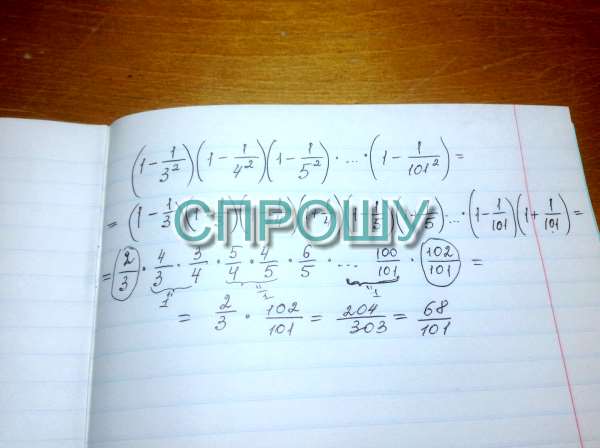 (1 - 1/3²)(1 - 1/4²)(1 - 1/5²) · ... · (1 - 1/101²) =
= (1 - 1/3)(1 ... (1 - 1/101)(1 + 1/101) =
СПРОШУ
= 2/3 · 4/3 · 3/4 · 5/4 · 4/5 · 6/5 · ... 100/101 · 102/101 =
1 1 1
= 2/3 · 102/101 = 204/303 = 68/101